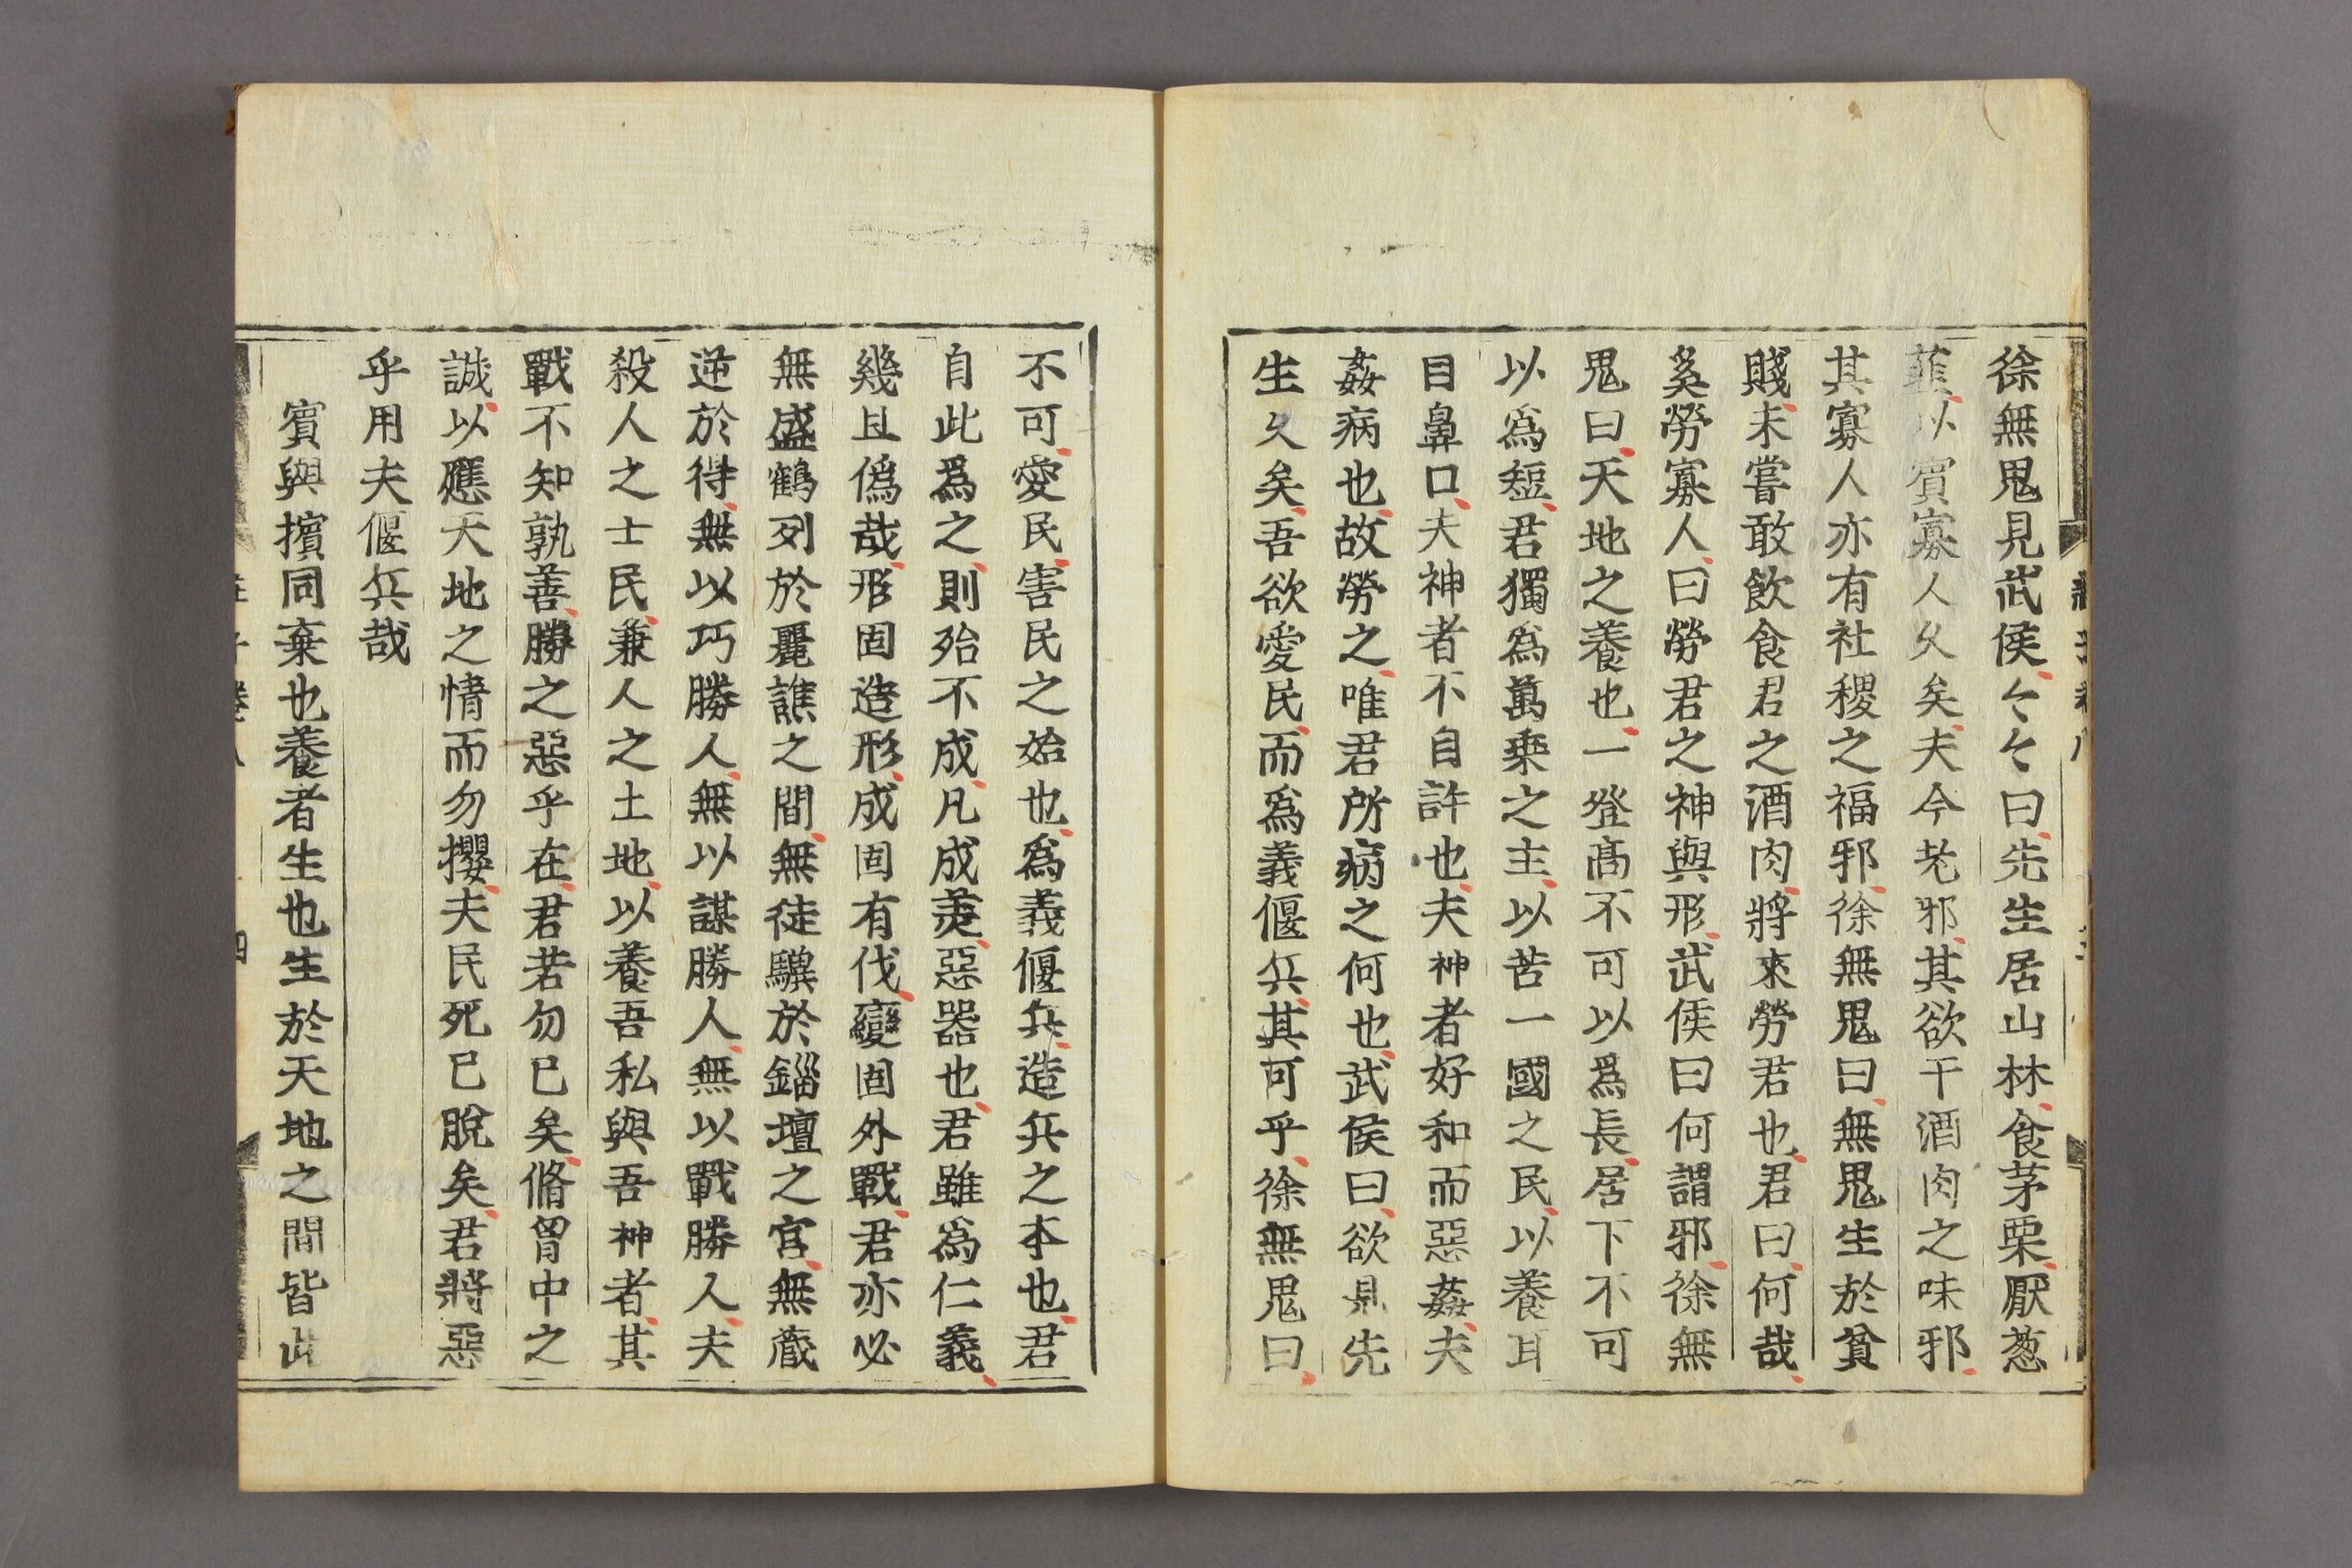 徐無鬼見武侯々々曰先生居山林食茅栗厭葱
韮以賓寡人久矣夫今老邪其欲干酒肉之味邪
其寡人亦有社稷之福邪徐無鬼曰無鬼生於貧
賤未嘗敢飲食君之酒肉將來勞君也君曰何哉
奚勞寡人曰勞君之神與形武侯曰何謂邪徐無
鬼曰天地之養也一登髙不可以爲長居下不可
以爲短君獨爲萬乗之主以苦一國之民以養耳
目鼻口夫神者不自許也夫神者好和而惡姦夫
姦病也故勞之唯君所病之何也武侯曰欲見先
生久矣吾欲愛民而爲義偃兵其可乎徐無鬼曰
不可愛民害民之始也爲義偃兵造兵之本也君
自此爲之則殆不成凡成美惡器也君雖爲仁義
幾且僞哉形固造形成固有伐變固外戰君亦必
無盛鶴列於麗譙之間無徒驥於錙壇之宮無蔵
逆於得無以巧勝人無以謀勝人無以戰勝人夫
殺人之士民兼人之土地以養吾私與吾神者其
戰不知孰善勝之惡乎在君若勿已矣脩胷中之
誠以應天地之情而勿攖夫民死已脫矣君將惡
乎用夫偃兵哉
賓與擯同棄也養者生也生於天地之間皆此